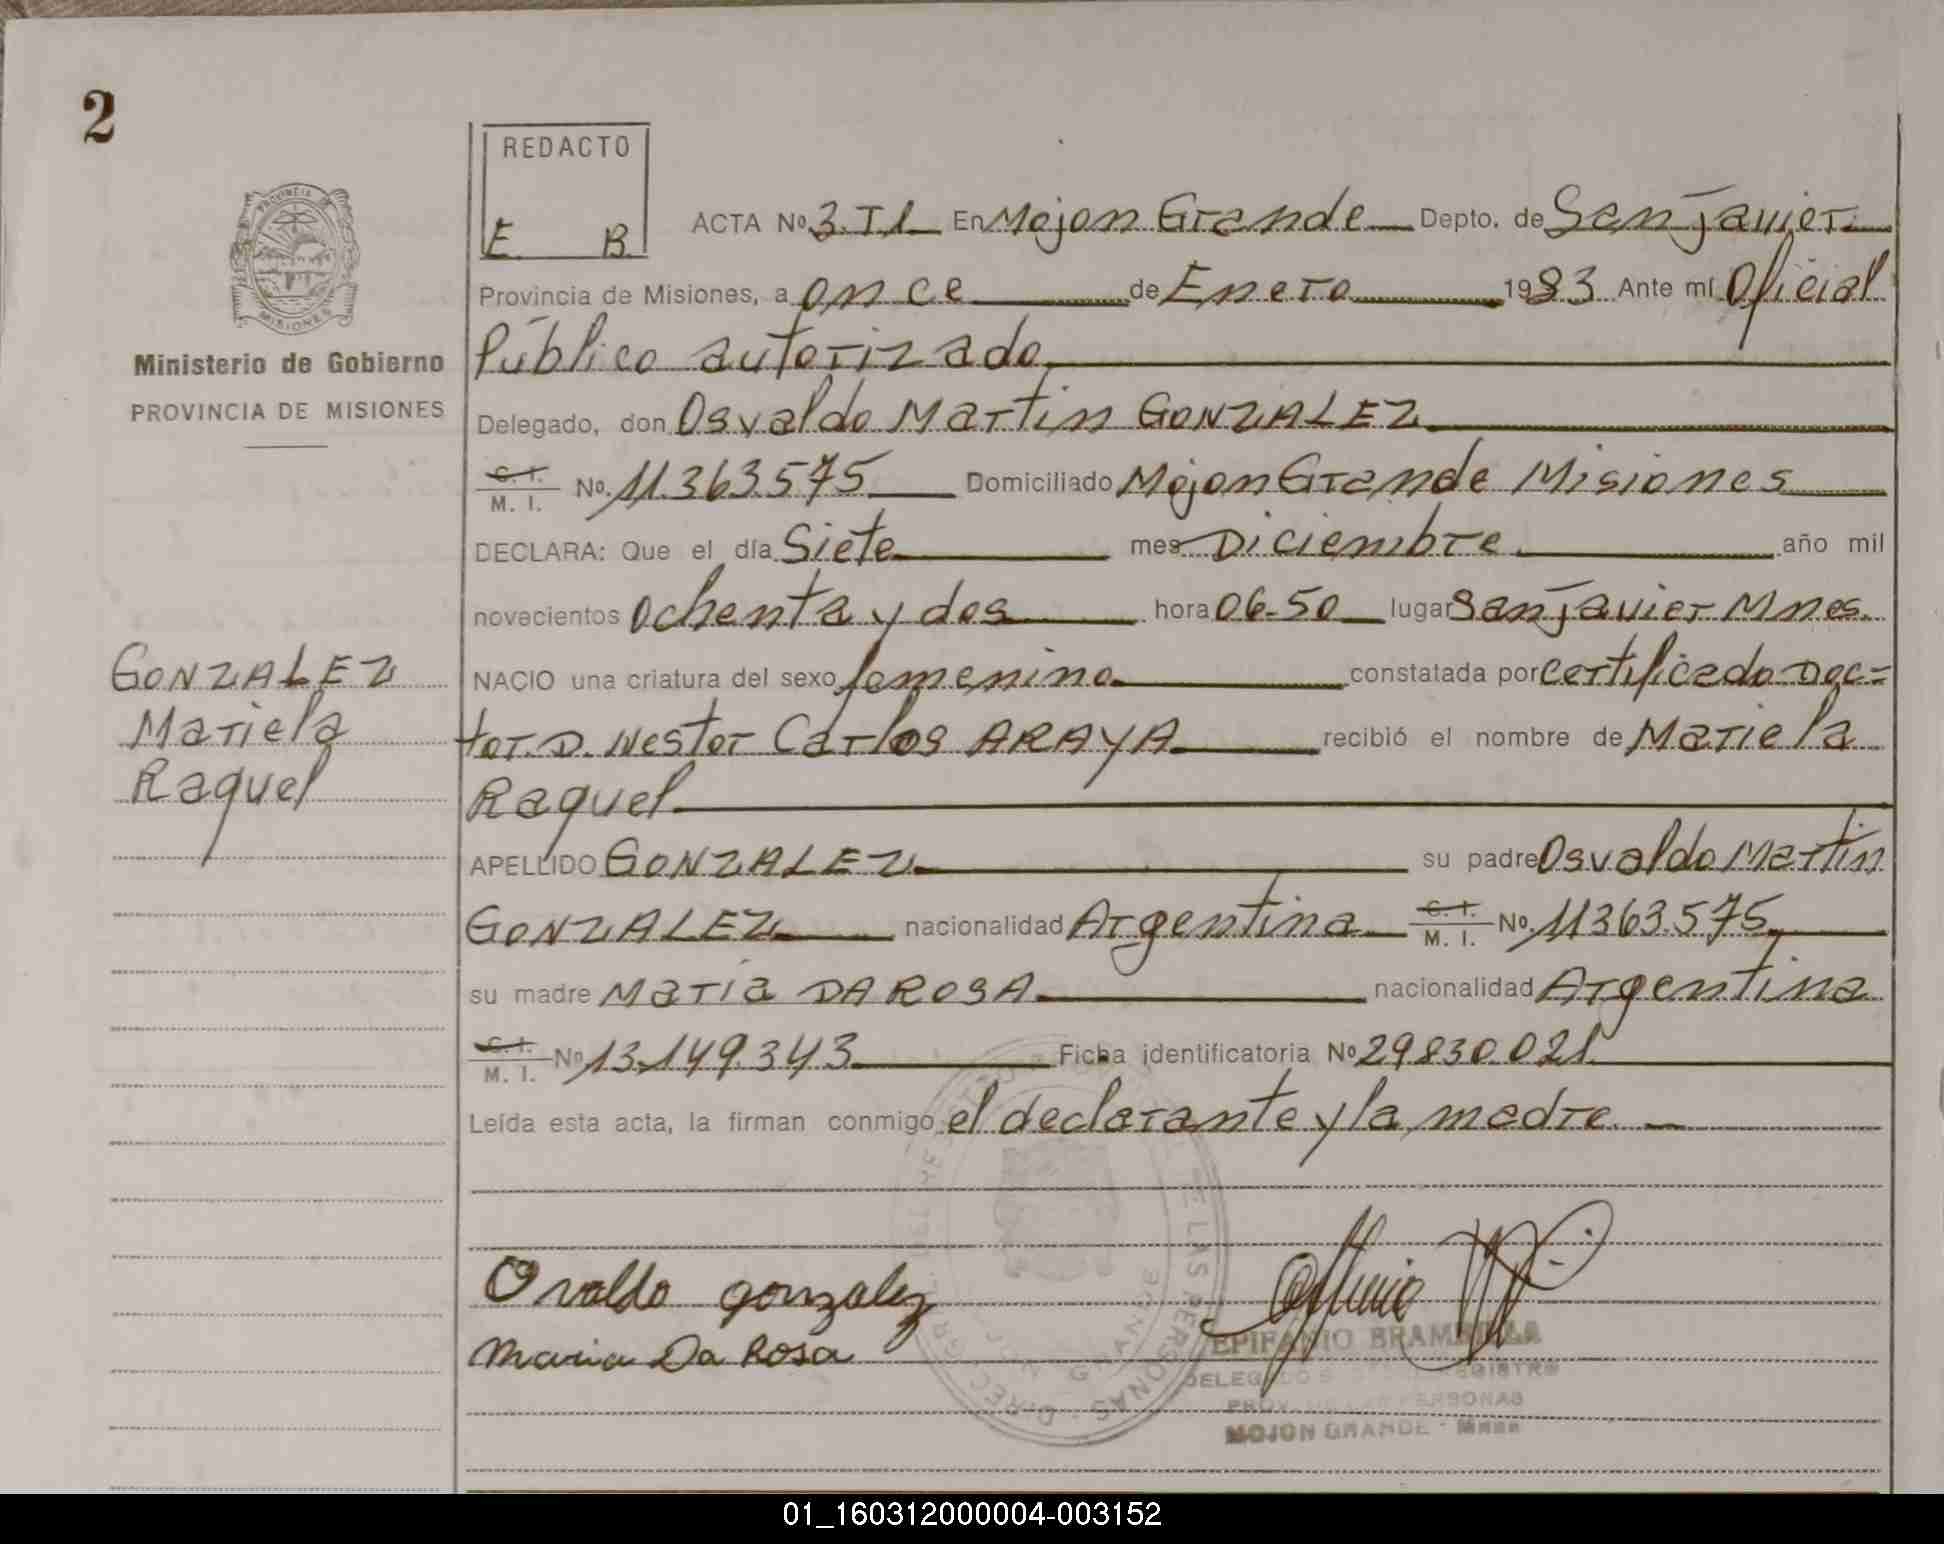 2
REDACTO
E. B.
PROVINCIA DE
MISIONES
Ministerio de Gobierno
PROVINCIA DE MISIONES
ACTA No 3.T1 En Mojon Grande Depto. de San Javier
Provincia de Misiones, a once de Enero 1983 Ante mí Oficial
Público autorizado
Delegado, don Osvaldo Martin GONZALEZ
C. I. M. I. No. 11.363.575 Domiciliado Mojon Grande Misiones
DECLARA: Que el día Siete mes Diciembre año mil
novecientos Ochenta y dos hora 06-50 lugar San Javier Mnes.
NACIO una criatura del sexo femenino constatada por certificado Doc=
tor. D. Nestor Carlos ARAYA recibió el nombre de Mariela
Raquel
APELLIDO GONZALEZ su padre Osvaldo Martin
GONZALEZ nacionalidad Argentina C. I. M. I. No. 11363.575
su madre Maria DA ROSA nacionalidad Argentina
C. I. M. I. No 13.149.343 Ficha identificatoria No 29830.021
Leída esta acta, la firman conmigo el declarante y la madre.
GONZALEZ
Mariela
Raquel
Osvaldo gonzalez
Maria Da Rosa
EPIFANIO BRAMBILLA
DELEGADO REGISTRO
PROV. DE LAS PERSONAS
MOJON GRANDE - Mnes
DE LAS PERSONAS - DIREC
GRANDE
01_160312000004-003152